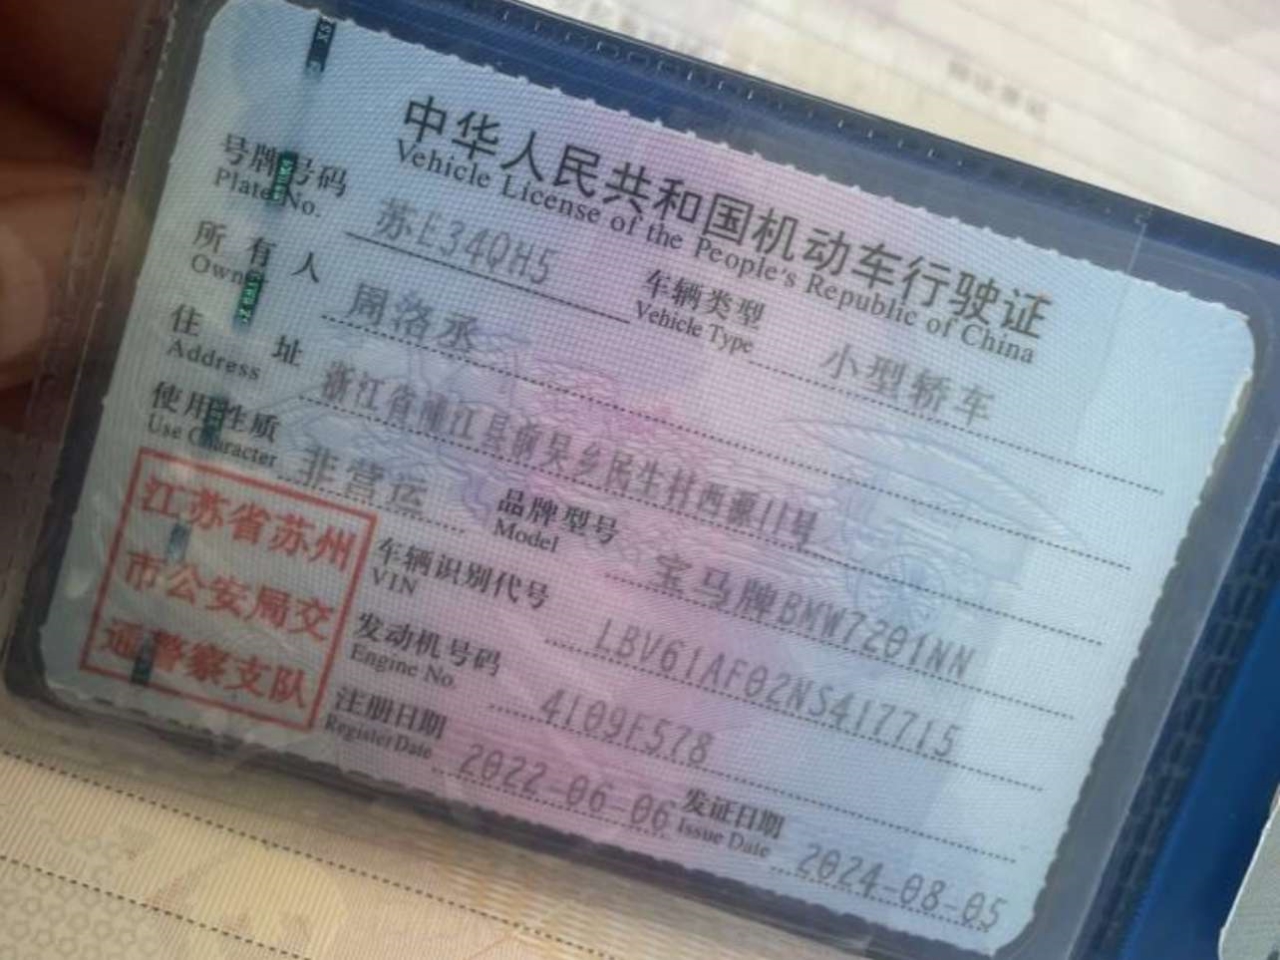 中华人民共和国机动车行驶证
Vehicle License of the People's Republic of China
号牌号码 苏E34QH5 车辆类型 小型轿车
Plate No. Vehicle Type
所有人 周洛丞
Owner
住址 浙江省浦江县前吴乡民生村西源11号
Address
使用性质 非营运 品牌型号 宝马牌BMW7201NN
Use Character Model
江苏省苏州
市公安局交
通警察支队
车辆识别代号 LBV61AF02NS417715
VIN
发动机号码 4109F578
Engine No.
注册日期 2022-06-06 发证日期 2024-08-05
Register Date Issue Date